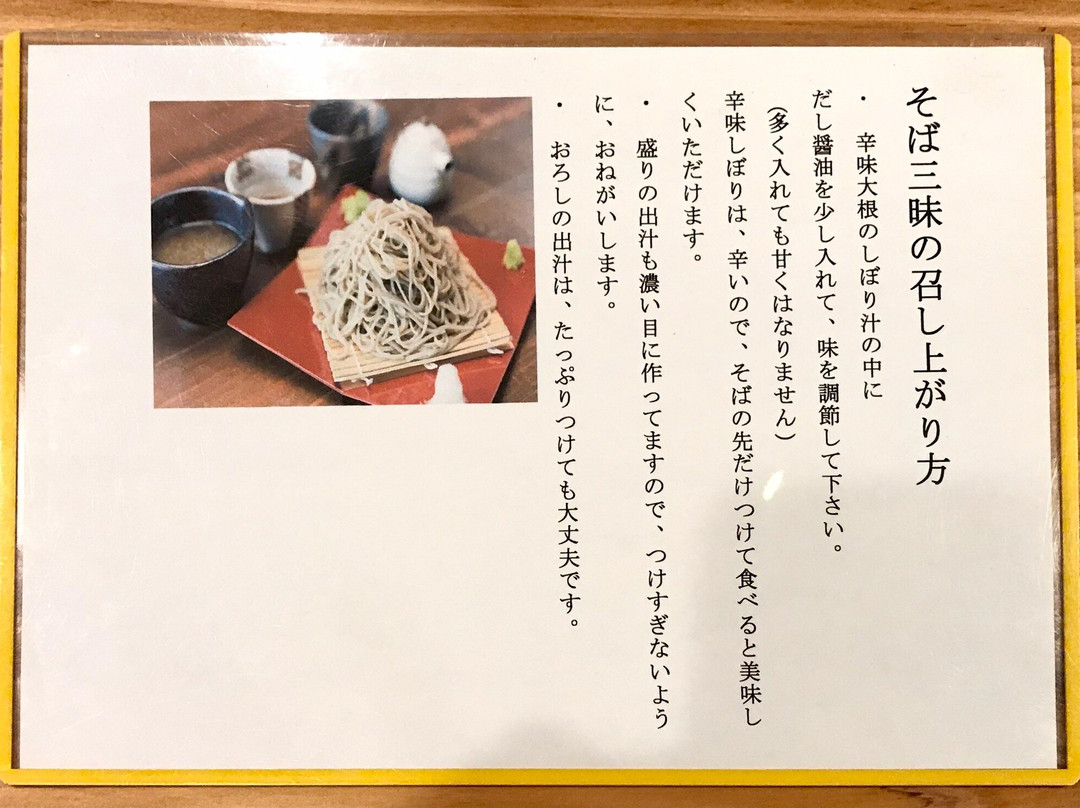 そば三昧の召し上がり方
・　辛味大根のしぼり汁の中に
だし醤油を少し入れて、味を調節して下さい。
（多く入れても甘くはなりません）
辛味しぼりは、辛いので、そばの先だけつけて食べると美味し
くいただけます。
・　盛りの出汁も濃い目に作ってますので、つけすぎないよう
に、おねがいします。
・　おろしの出汁は、たっぷりつけても大丈夫です。